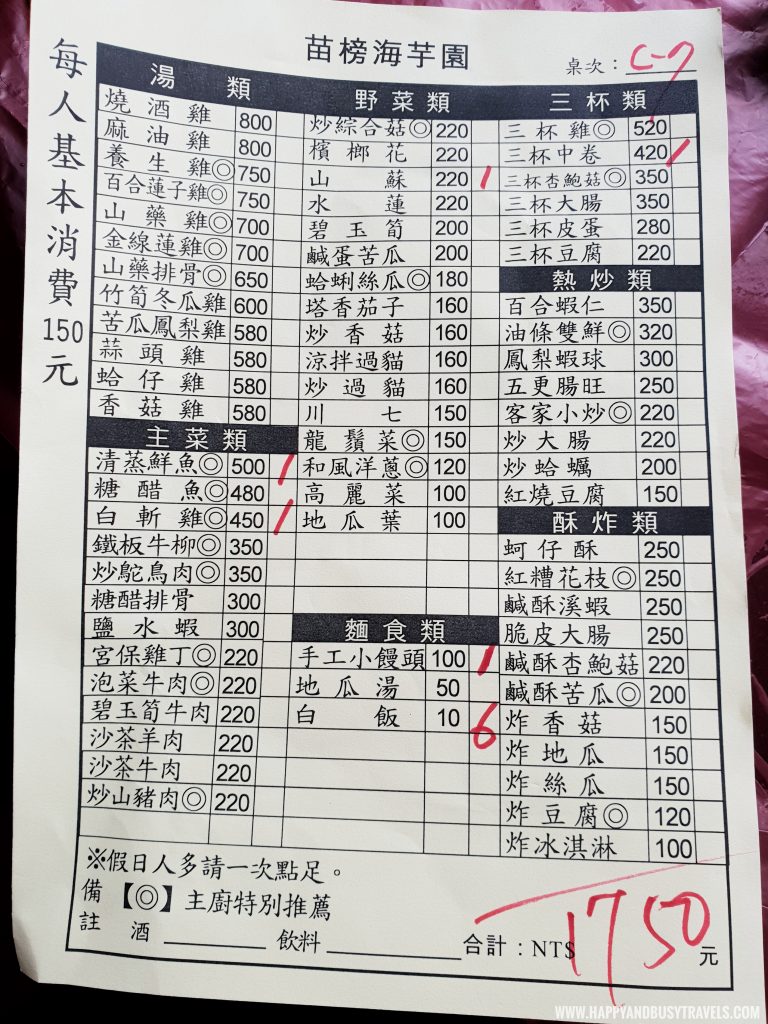 苗榜海芋園
桌次：C-7
每人基本消費150元
湯類
燒酒雞 800
麻油雞 800
養生雞◎ 750
百合蓮子雞◎ 750
山藥雞◎ 700
金線蓮雞◎ 700
山藥排骨◎ 650
竹筍冬瓜雞 600
苦瓜鳳梨雞 580
蒜頭雞 580
蛤仔雞 580
香菇雞 580
主菜類
清蒸鮮魚◎ 500 /
糖醋魚◎ 480
白斬雞◎ 450 /
鐵板牛柳◎ 350
炒鴕鳥肉◎ 350
糖醋排骨 300
鹽水蝦 300
宮保雞丁◎ 220
泡菜牛肉◎ 220
碧玉筍牛肉 220
沙茶羊肉 220
沙茶牛肉 220
炒山豬肉◎ 220
野菜類
炒綜合菇◎ 220
檳榔花 220
山蘇 220 /
水蓮 220
碧玉筍 200
鹹蛋苦瓜 200
蛤蜊絲瓜◎ 180
塔香茄子 160
炒香菇 160
涼拌過貓 160
炒過貓 160
川七 150
龍鬚菜◎ 150
和風洋蔥◎ 120
高麗菜 100
地瓜葉 100
麵食類
手工小饅頭 100 /
地瓜湯 50
白飯 10 6
三杯類
三杯雞◎ 520
三杯中卷 420 /
三杯杏鮑菇◎ 350
三杯大腸 350
三杯皮蛋 280
三杯豆腐 220
熱炒類
百合蝦仁 350
油條雙鮮◎ 320
鳳梨蝦球 300
五更腸旺 250
客家小炒◎ 220
炒大腸 220
炒蛤蠣 200
紅燒豆腐 150
酥炸類
蚵仔酥 250
紅糟花枝◎ 250
鹹酥溪蝦 250
脆皮大腸 250
鹹酥杏鮑菇 220
鹹酥苦瓜◎ 200
炸香菇 150
炸地瓜 150
炸絲瓜 150
炸豆腐◎ 120
炸冰淇淋 100
備註
※假日人多請一次點足。
【◎】主廚特別推薦
酒 飲料 合計：NT$ 1750 元
WWW.HAPPYANDBUSYTRAVELS.COM